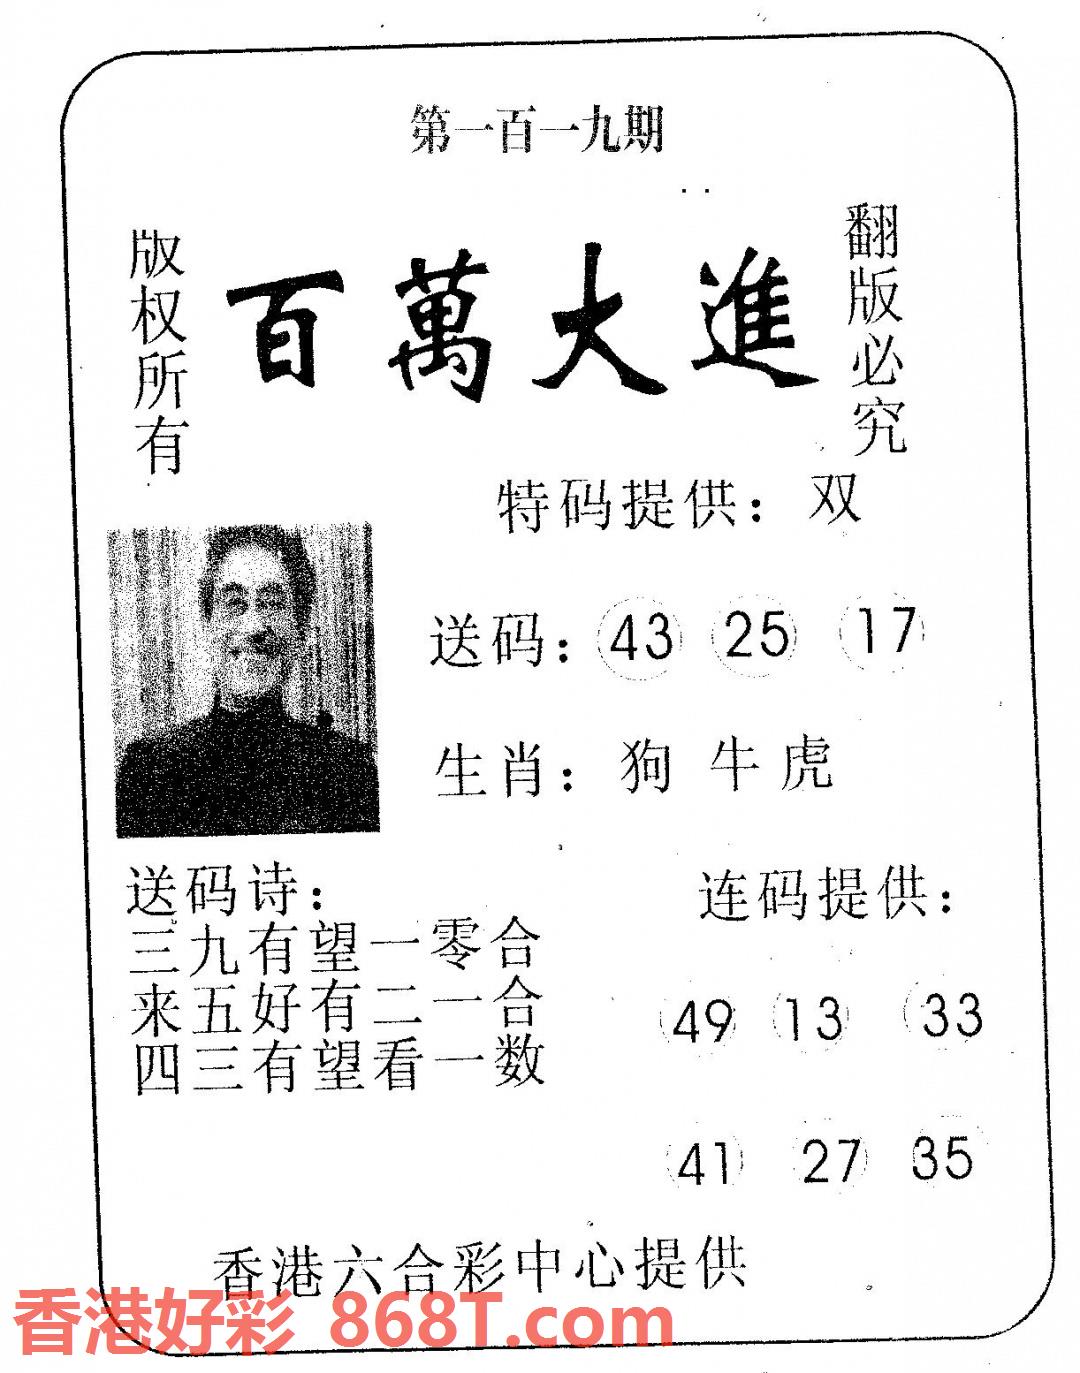 第一百一九期
版权所有
百萬大進
翻版必究
特码提供：双
送码：43 25 17
生肖：狗 牛 虎
送码诗：
三九有望一零合
来五好有二一合
四三有望看一数
连码提供：
49 13 33
41 27 35
香港六合彩中心提供
香港好彩 868T.com